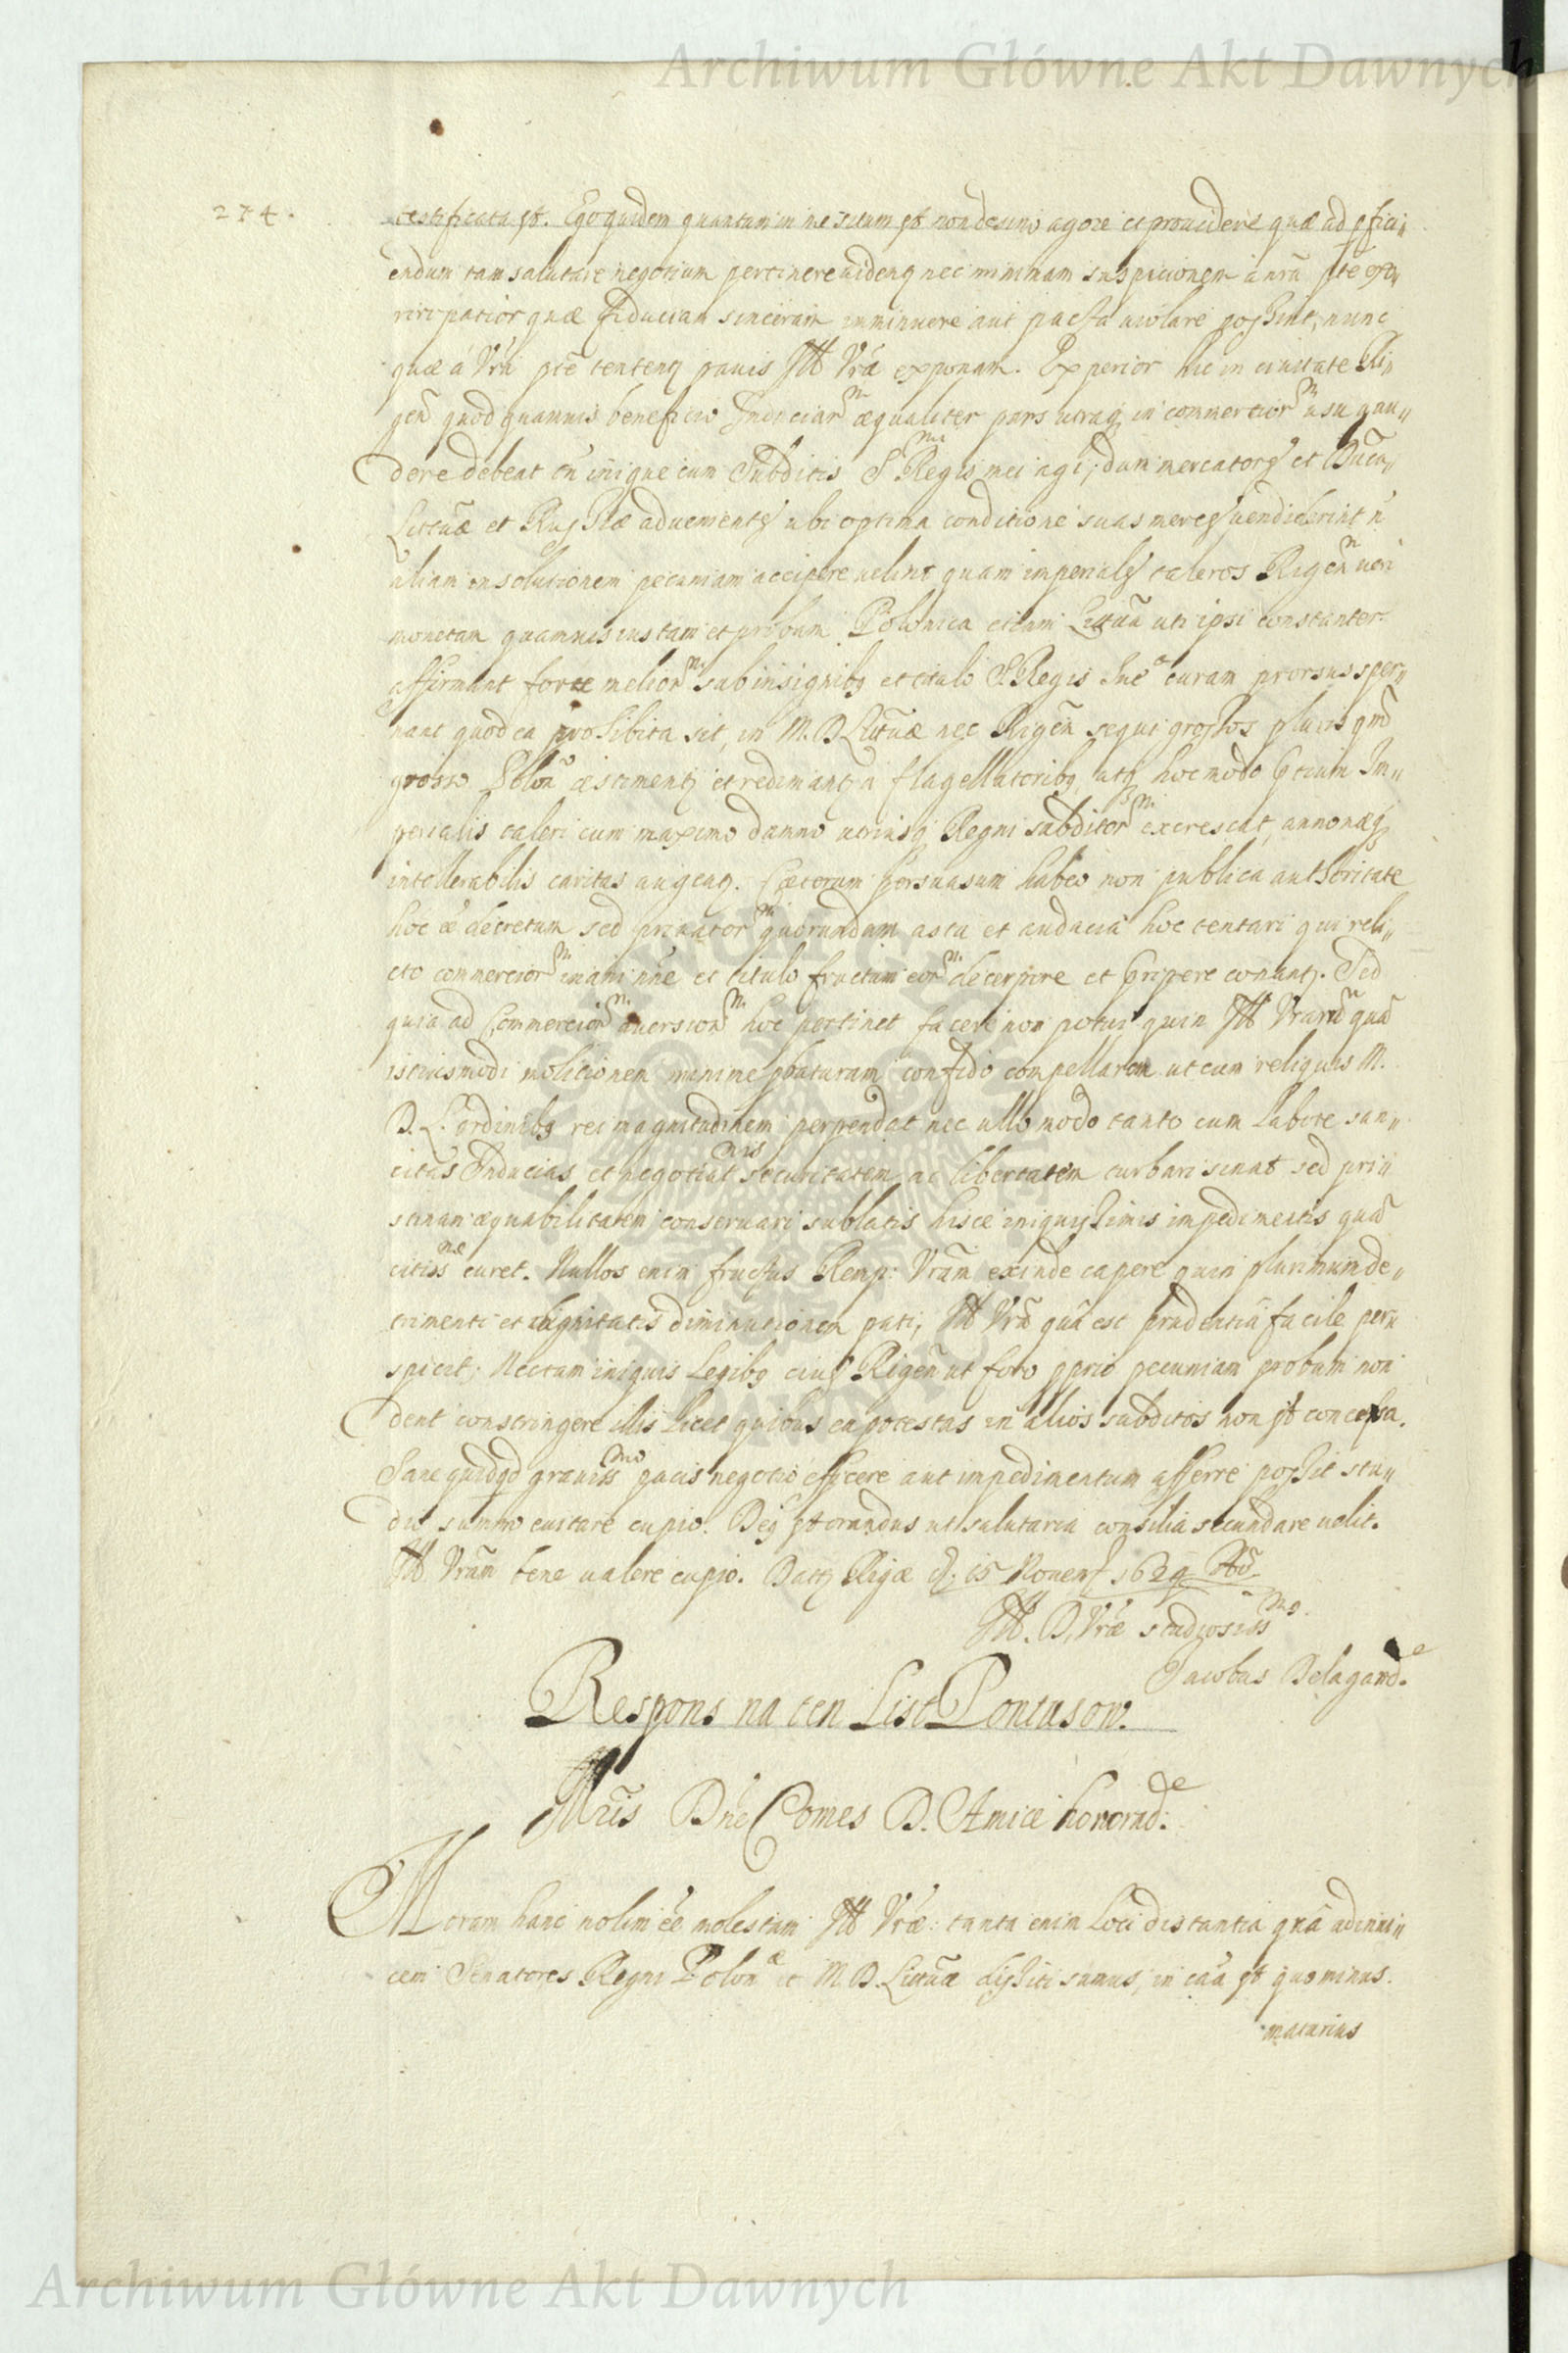 Archiwum Główne Akt Dawnych
274.
testificata st. Ego quidem quantum in me situm st non desino agere et prouidere quæ ad pfici„
endum tam salutare negotium pertinere uident nec minimam suspicionem a nrã pte ori„
riri patior quæ fiduciam sinceram imminuere aut pacta uiolare possint, nunc
quæ a Vrã pte tentent pauis Ill Vræ exponam. Experior hic in ciuitate Ri„
gen quod quamuis beneficio Induciarm æqualiter pars utraq in commerciorm usu gau„
dere debeat tñ inique cum Subditis Smi Regis mei agi, dum mercatores et Ducũ
Lituæ et Russiæ aduenientes ubi optima conditione suas merces uendiderint ñ
aliam in solutionem pecuniam accipere uelint quam imperiales taleros Rigen uero
monetam quamuis iustam et probam Polonica etiam Lituã uti ipsi constanter
affirmant forte meliorm sub insignibq et titulo S. Regis Sue curam prorsus sper„
nant quod ea prohibita sit, in M. D. Lituæ nec Rigen sequi grossos pluris qm
grosso Polon æstiment et redimant a flagellatoribq, atq hoc modo ptium Im„
perialis taleri cum maximo damno utriusq Regni subditorm excrescat, annonæq
intollerabilis caritas augeat. Cæterum persuasum habeo non publica authoritate
hoc ee decretum sed priuatorm quorundam astu et audacia hoc tentari qui reli„
cto commerciorm inani nne et titulo fructum eorm decerpere et pripere conant. Sed
quia ad Commerciorm auersionm hoc pertinet facere non potui quin Ill Vram quã
istiusmodi molitionem minime pbaturam confido compellarem ut cum reliquis M.
D. L. ordinibq rei magnitudinem perpendat nec ullo modo tanto cum labore san„
citas Inducias et negotiationis securitatem ac libertatem turbari sinat sed pri„
stinam æquabilitatem conseruari sublatis hisce iniquissimis impedimentis quã
citissme curet. Nullos enim fructus Remp: Vram exinde capere quin plurimum de„
trimenti et dignitatis diminutionem pati, Ill Vrã quâ est prudentiâ facile per„
spicit; Nec tam iniquis Legibq ciues Rigen ut foro pprio pecuniam probam non
dent constringere illis licet quibus ea potestas in alios subditos non st concessa.
Sane quidqd grauissmo pacis negotio officere aut impedimentum afferre possit stu„
dio summo euitare cupio. Deq st orandus ut salutaria consilia secundare uelit.
Ill Vram bene ualere cupio. Dat Rigæ d. 15 Nouemb 1629 Aõ.
Ill. D. Vræ studiosissmo.
Jacobus Delagarde.
Respons na ten List Pontusow.
Illris Dne Comes D. Amice honorade.
Moram hanc nolim ee molestam Ill Vræ: tanta enim Loci distantia quâ adinui„
cem Senatores Regni Polonæ et M. D. Lituæ dissiti sumus, in caa st quo minus.
maturius
Archiwum Główne Akt Dawnych